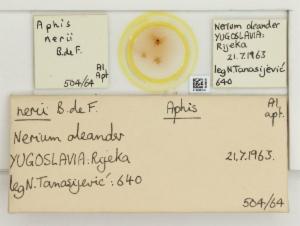 Aphis
nerii
B.de F.
Al.
apt.
504/64
Nerium oleander
YUGOSLAVIA:
Rijeka
21.7.1963
leg N. Tanasijević
640
nerii B. de F.
Aphis
Al
apt.
Nerium oleander
YUGOSLAVIA: Rijeka
21.7.1963.
leg N. Tanasijević: 640
504/64